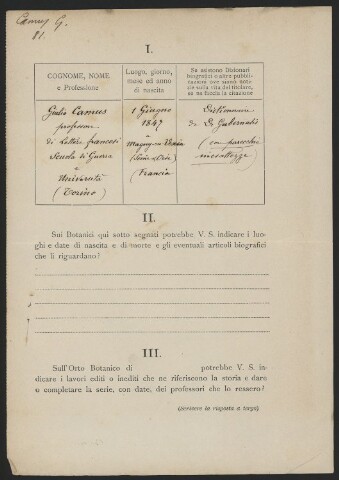 Camus G.
81.
I.
COGNOME, NOME
e Professione
Luogo, giorno,
mese ed anno
di nascita
Se esistono Dizionari
biografici o altre pubbli-
cazioni con cenni noti-
zie sulla vita del titolare,
se ne faccia la citazione
Giulio Camus
professore
di Lettere francesi
Scuola di Guerra
e
Università
(Torino)
1 Giugno
1847
a
Magny-en-Vexin
(Seine & Oise)
Francia
Dictionnaire
de De Gubernatis
(con parecchie
inesattezze)
II.
Sui Botanici qui sotto segnati potrebbe V. S. indicare i luo-
ghi e date di nascita e di morte e gli eventuali articoli biografici
che li riguardano?
III.
Sull'Orto Botanico di potrebbe V. S. in-
dicare i lavori editi o inediti che ne riferiscono la storia e dare
o completare la serie, con date, dei professori che lo ressero?
(Scrivere la risposta a tergo)